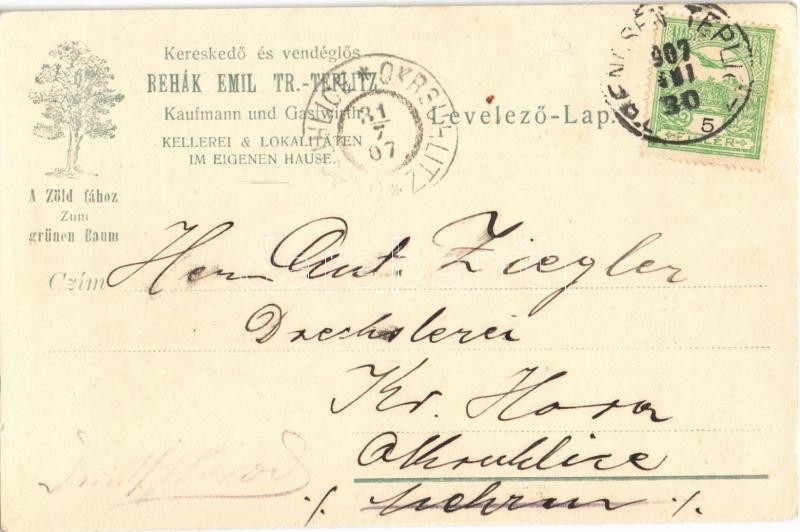 Kereskedő és vendéglős
REHÁK EMIL TR.-TEPLITZ
Kaufmann und Gastwirth
KELLEREI & LOKALITÄTEN
IM EIGENEN HAUSE.
A Zöld fához
Zum
grünen Baum
Levelező-Lap.
OKROUHLITZ
31
7
07
TEPLIC
907
30
5
FILLER
Czím
Herrn Ant. Ziegler
Drechslerei
Kr. Hora
Okruhlice